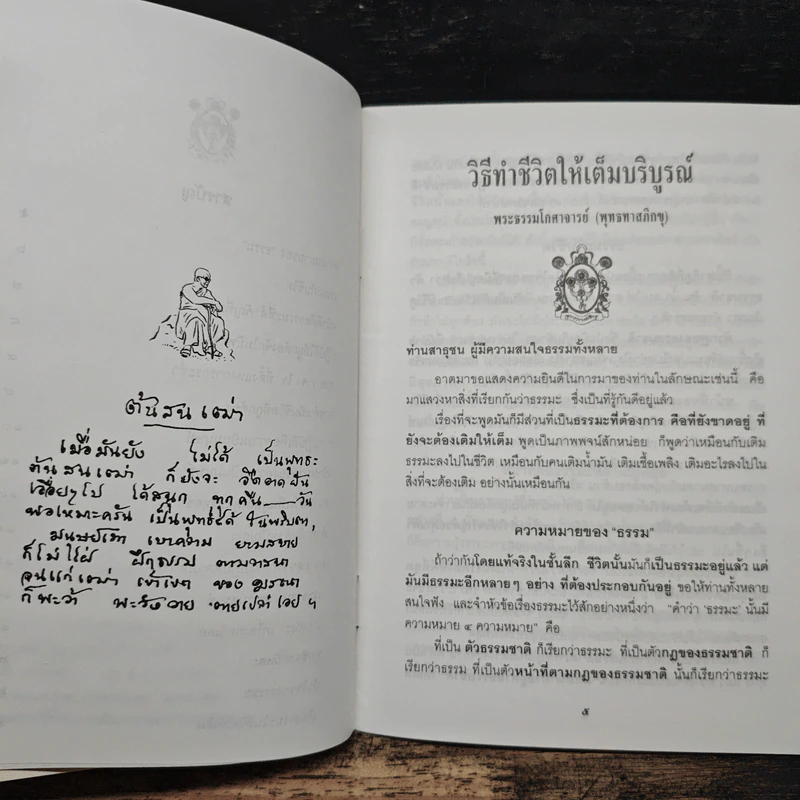 ต้นสนเฒ่า
เมื่อมันยัง ไม่ได้ เป็นพุทธะ
ต้นสนเฒ่า ก็ยังจะ
เรื่อยๆไป ได้สนุก ทุกคืน วัน
พอเหมาะครัน เป็นพุทธะได้ ในพริบตา,
มนุษย์เรา
จนแก่เฒ่า ของ
วิธีทำชีวิตให้เต็มบริบูรณ์
พระธรรมโกศาจารย์ (พุทธทาสภิกขุ)
ท่านสาธุชน ผู้มีความสนใจธรรมทั้งหลาย
อาตมาขอแสดงความยินดีในการมาของท่านในลักษณะเช่นนี้ คือ
มาแสวงหาสิ่งที่เรียกกันว่าธรรมะ ซึ่งเป็นที่รู้กันดีอยู่แล้ว
เรื่องที่จะพูดมันก็มีส่วนที่เป็นธรรมะที่ต้องการ คือที่ยังขาดอยู่ ที่
ยังจะต้องเติมให้เต็ม พูดเป็นภาพพจน์สักหน่อย ก็พูดว่าเหมือนกับเติม
ธรรมะลงไปในชีวิต เหมือนกับคนเติมน้ำมัน เติมเชื้อเพลิง เติมอะไรลงไปใน
สิ่งที่จะต้องเติม อย่างนั้นเหมือนกัน
ความหมายของ "ธรรม"
ถ้าว่ากันโดยแท้จริงในชั้นลึก ชีวิตนั้นมันก็เป็นธรรมะอยู่แล้ว แต่
มันมีธรรมะอีกหลายๆ อย่าง ที่ต้องประกอบกันอยู่ ขอให้ท่านทั้งหลาย
สนใจฟัง และจำหัวข้อเรื่องธรรมะไว้สักอย่างหนึ่งว่า "คำว่า 'ธรรมะ' นั้นมี
ความหมาย ๔ ความหมาย" คือ
ที่เป็น ตัวธรรมชาติ ก็เรียกว่าธรรมะ ที่เป็นตัวกฎของธรรมชาติ ก็
เรียกว่าธรรม ที่เป็นตัวหน้าที่ตามกฎของธรรมชาติ นั้นก็เรียกว่าธรรมะ
๕